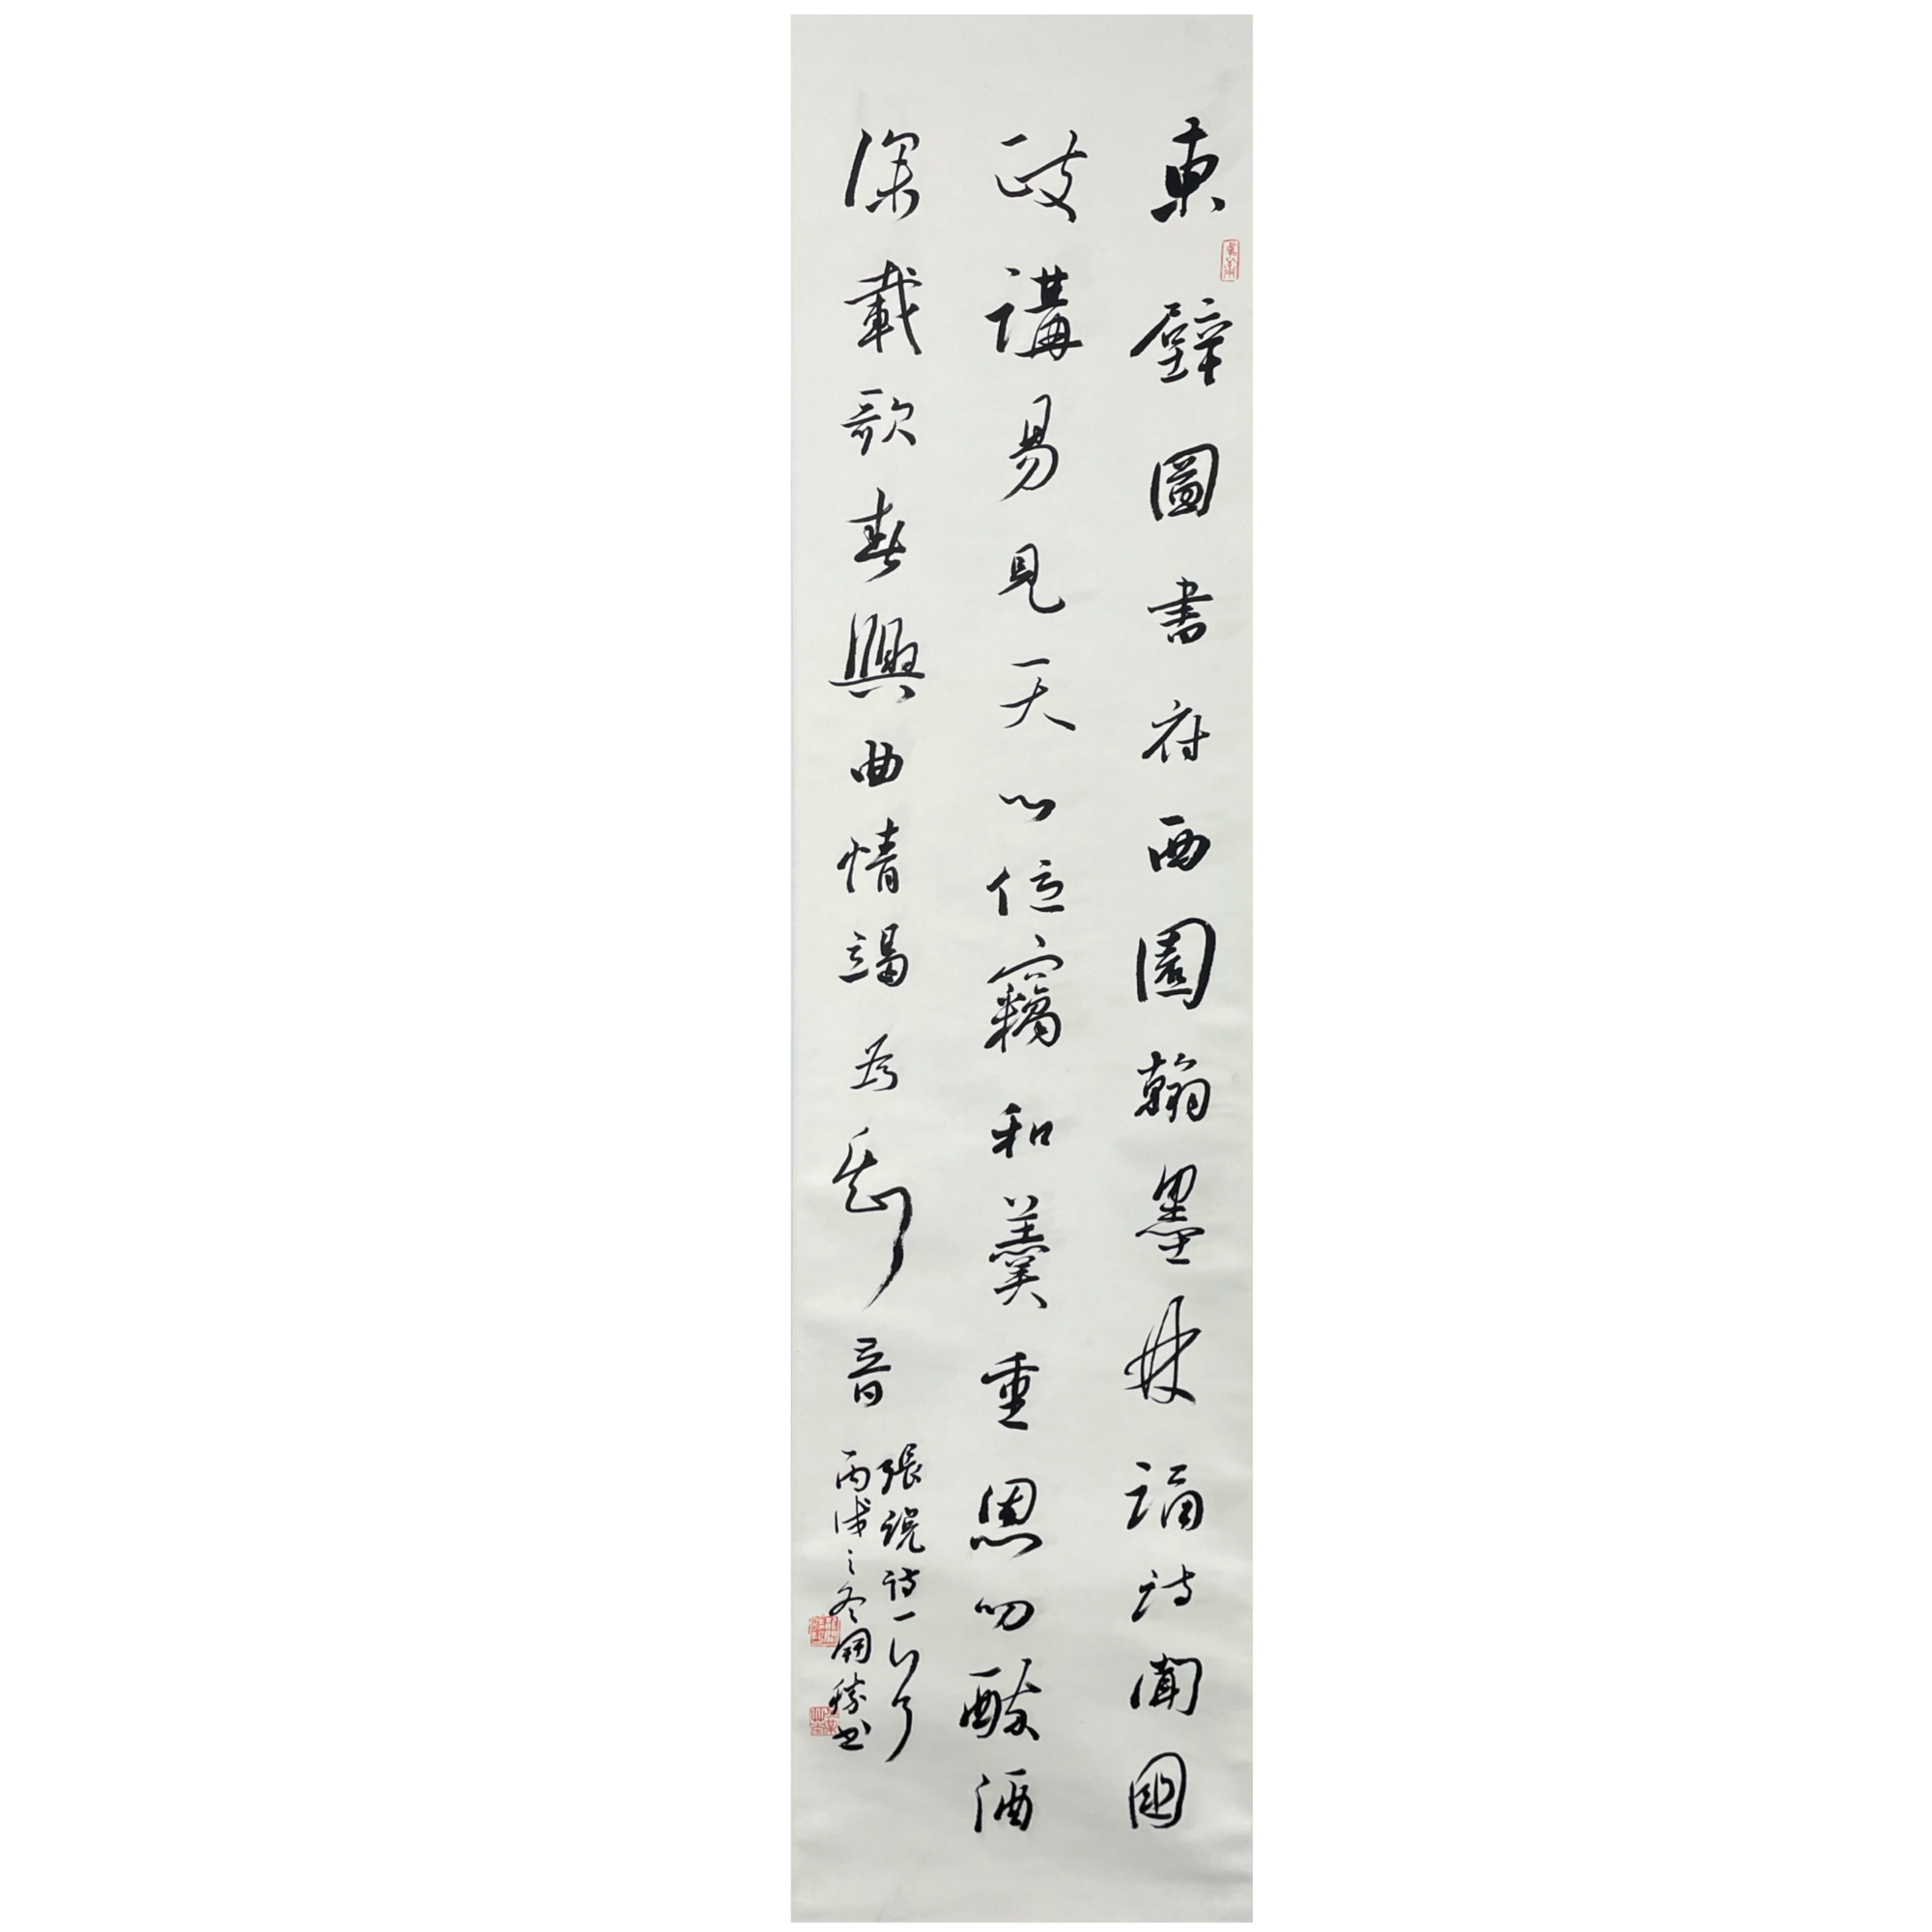 東壁圖書府西園翰墨林誦詩聞國
政講易見天心位竊和羹重恩叨醉酒
深載歌春興曲情竭為知音
張說詩一首
丙戌之冬開勝書